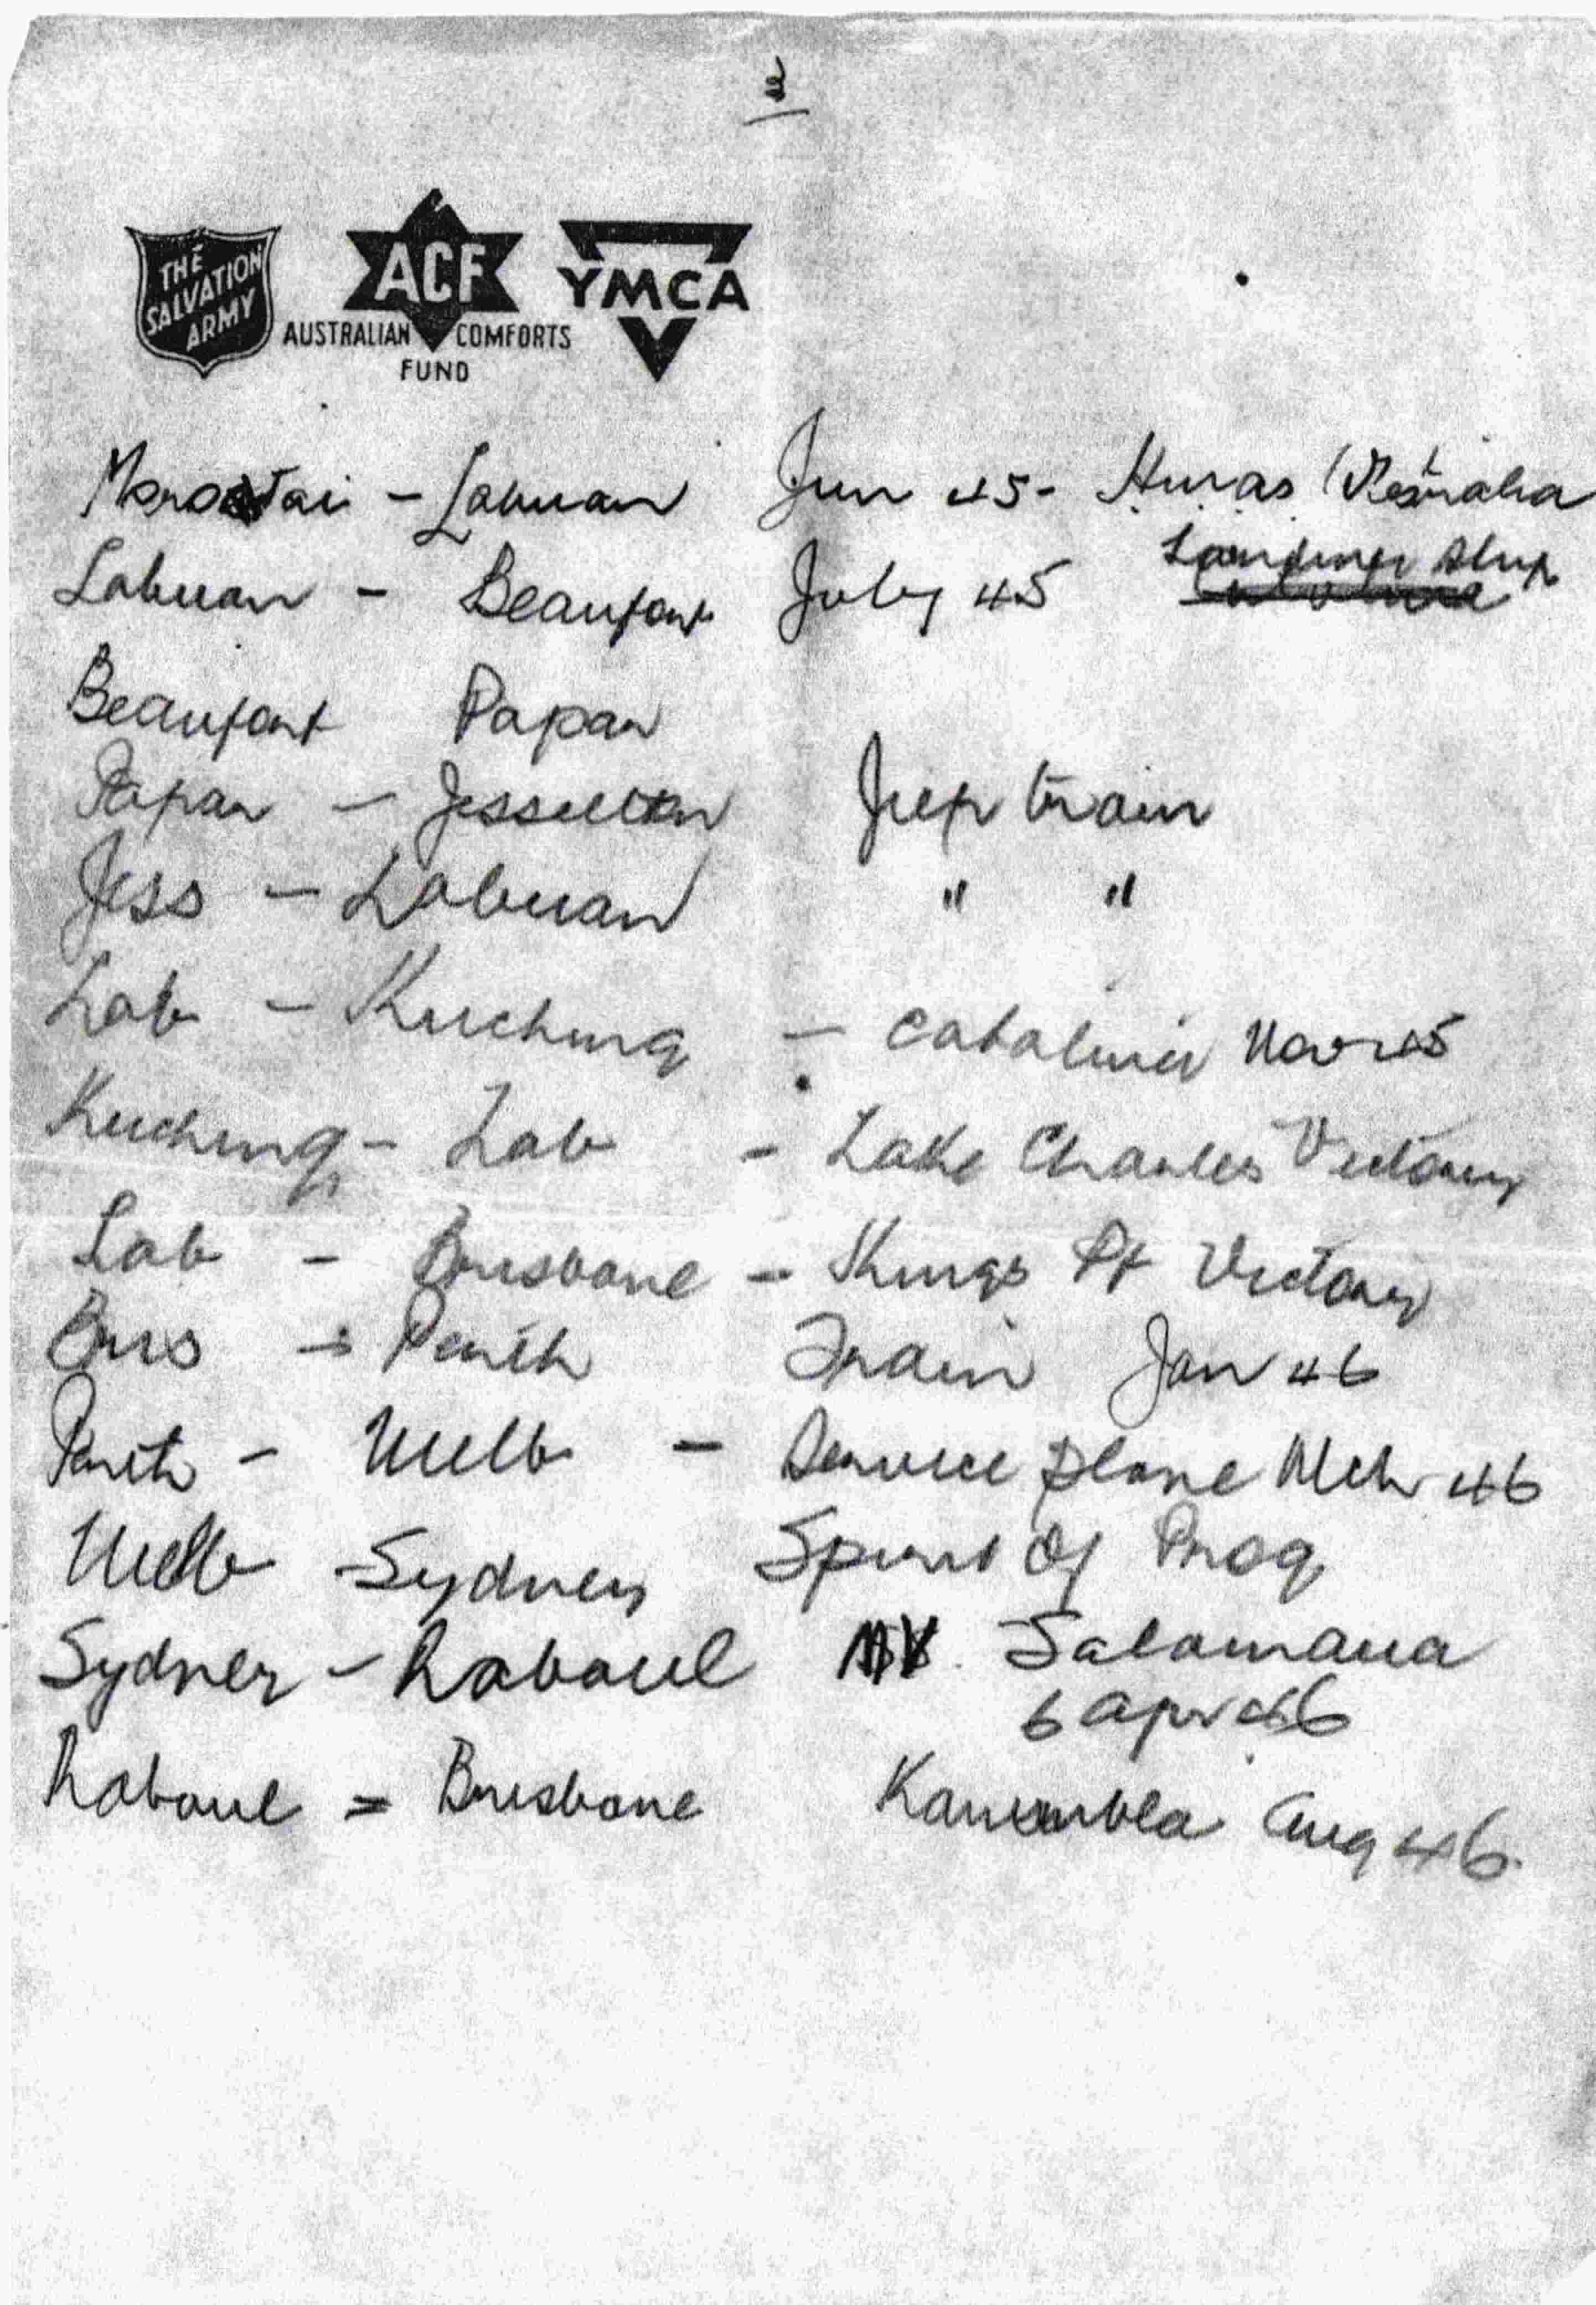 3
THE SALVATION ARMY
ACF
AUSTRALIAN COMFORTS FUND
YMCA
Morotai - Labuan Jun 45 - H.M.A.S.
Labuan - Beaufort July 45 Landing Ship
Beaufort Papar
Papar - Jesselton Jeep train
Jess - Labuan " "
Lab - Kuching - Catalina Nov 45
Kuching - Lab - Lake Charles Victory
Lab - Brisbane - Kings Pt Victory
Bris - Perth Train Jan 46
Perth - Melb - Service plane Mch 46
Melb - Sydney Spirit of Prog
Sydney - Rabaul MV Salamaua
6 Apr 46
Rabaul = Brisbane Kanimbla Aug 46.